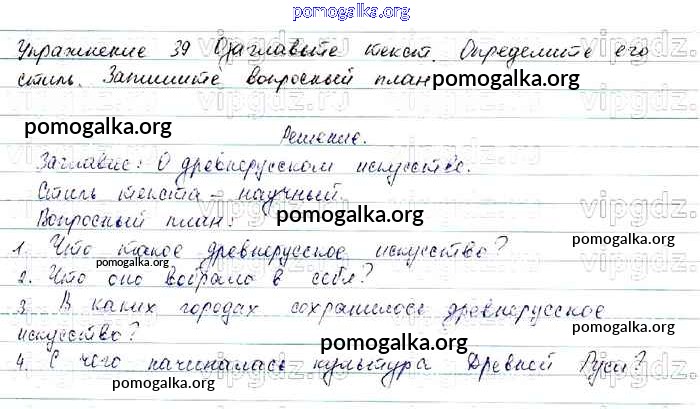 pomogalka.org
Упражнение 39 Озаглавьте текст. Определите его
стиль. Запишите вопросный план pomogalka.org
pomogalka.org
Решение.
Заглавие: О древнерусском искусстве.
Стиль текста – научный.
Вопросный план: pomogalka.org
1. Что такое древнерусское искусство?
pomogalka.org pomogalka.org
2. Что оно вобрало в себя?
3. В каких городах сохранилось древнерусское
искусство? pomogalka.org
4. С чего начиналась культура Древней Руси?
pomogalka.org pomogalka.org